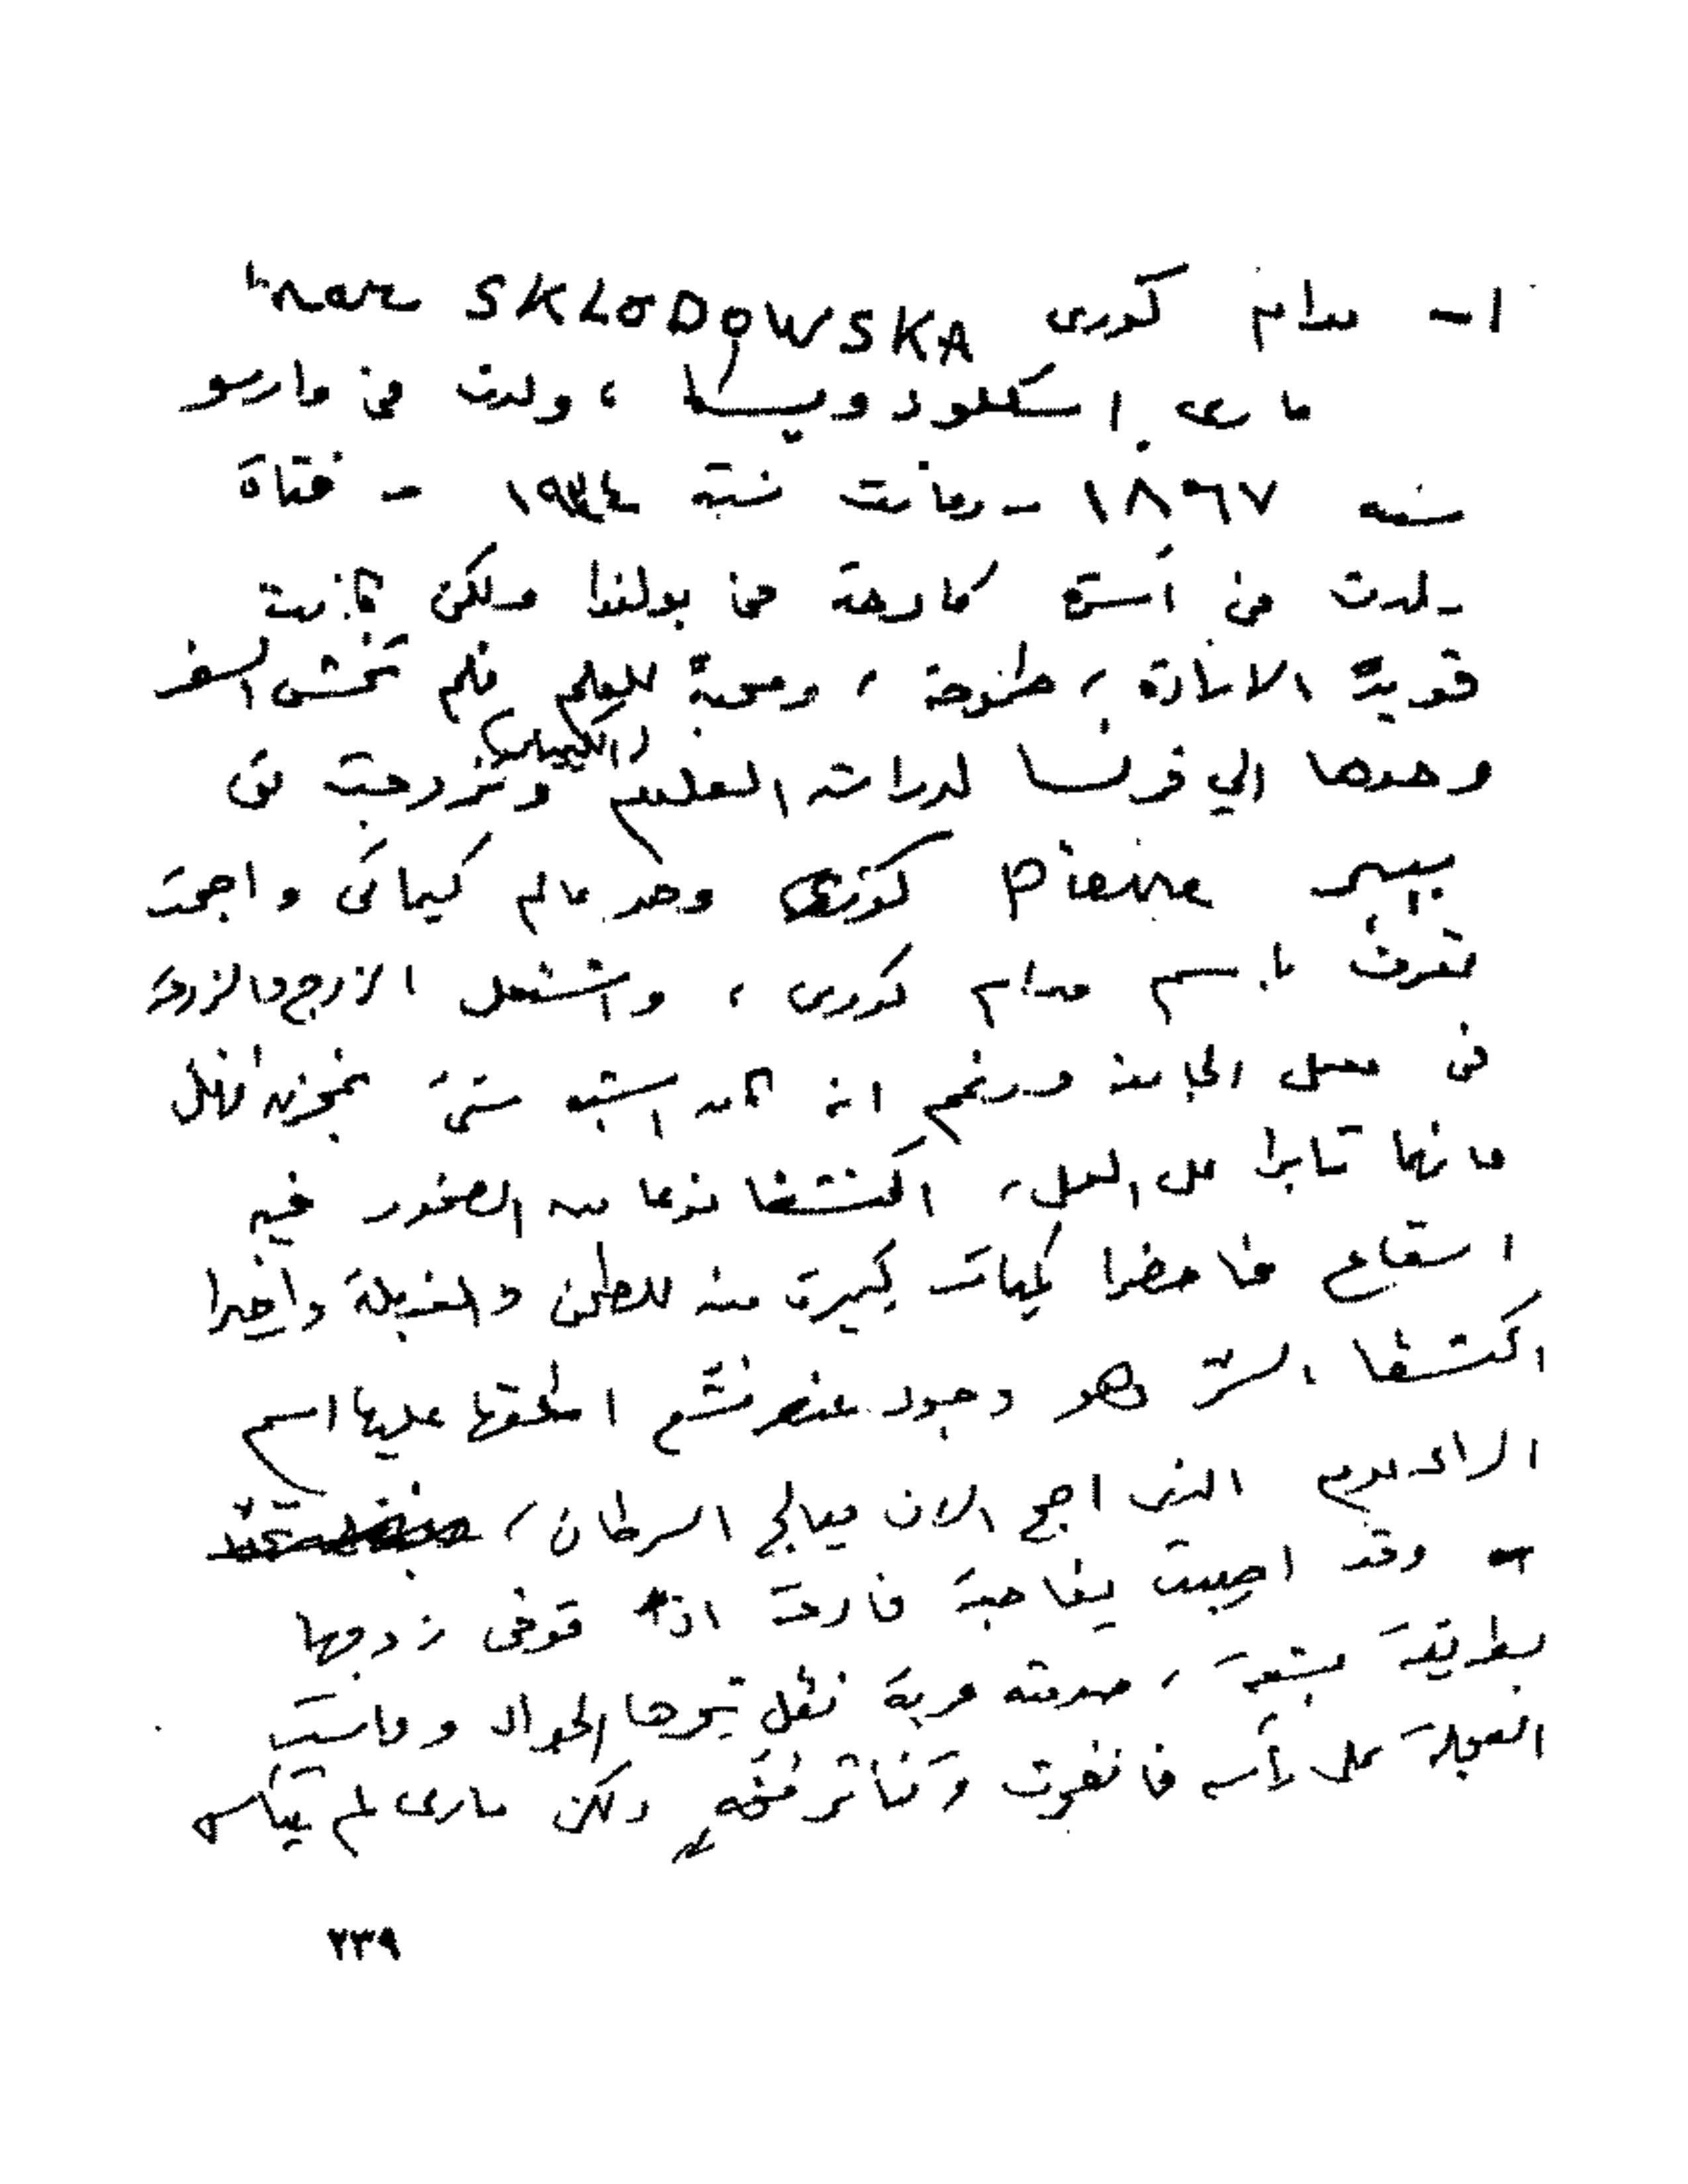 ١- مدام كورى SKLODOWSKA
مارى اسكلودويسكا، ولدت فى وارسو
سنه ١٨٦٧ - وماتت سنة ١٩٣٤ - فتاة
ولدت فى أسرة كادحة فى بولندا ولكن كانت
قوية الارادة، طموحة، ومحبة للعلم فلم تخش السفر
وحدها الي فرنسا لدراسة العلوم (الكيمياء) وتزوجت من
بيير Pierre كورى وهو عالم كيمائى واصبحت
تعرف باسم مدام كورى، واشتغل الزوج والزوجة
فى معمل الجامعة ورغم انه كان اشبه شئ بمخزن
فانهما ثابرا على العمل، اكتشفا نوعا من الصخور فيه
اشعاع فاحضرا كميات كبيرة منه للطحن والغربلة واخيرا
اكتشفا السر وهو وجود عنصر مشع اطلقا عليها اسم
الراديوم الذى اصبح الان يعالج السرطان،
- وقد اصيبت بفاجعة فادحة اذ توفى زوجها
بطريقة بشعة، صدمته عربة نقل تجرها الجياد وداست
العجلة على رأسه فانفجرت وتناثر مخه ولكن مارى لم تيأس
٢٣٩